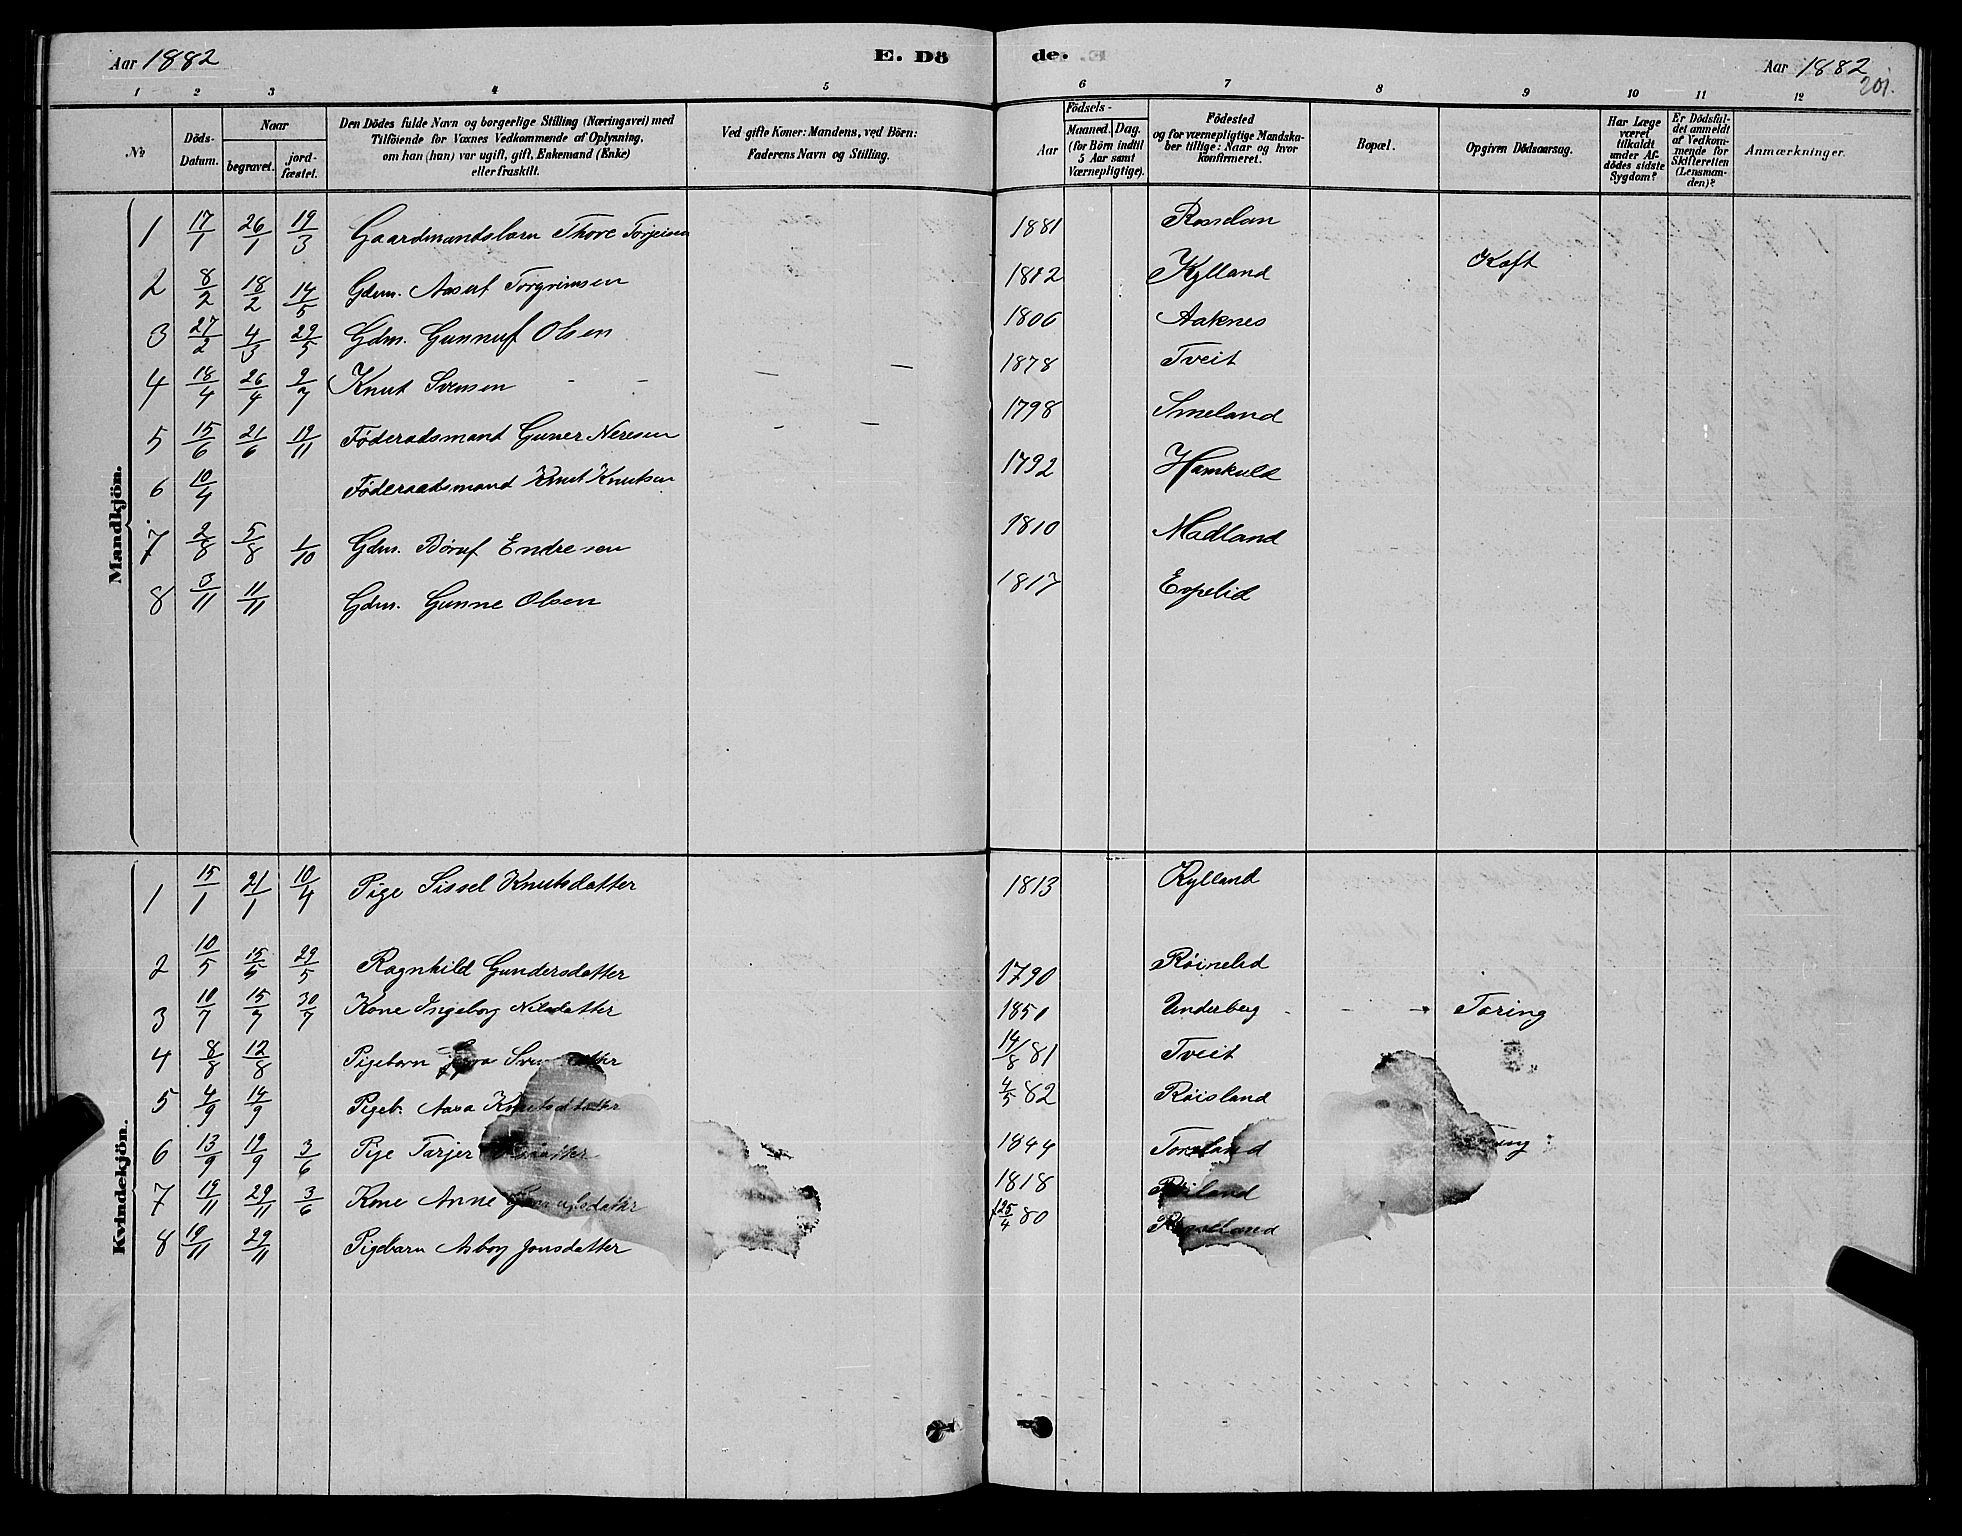 Aar 1882 E. Dö
de. Aar 1882
201.
1 2 3 4 5 6 7 8 9 10 11 12
№ Döds-Datum. Naar begravet. jord-fæstet. Den Dödes fulde Navn og borgerlige Stilling (Næringsvei) med Tilföiende for Voxnes Vedkommende af Oplysning. om han (hun) var ugift, gift, Enkemand (Enke) eller fraskilt. Ved gifte Koner: Mandens, ved Börn: Faderens Navn og Stilling.
Födsels- Aar Maaned. Dag. (for Börn indtil 5 Aar samt Værnepligtige). Födested og for værnepligtige Mandskaber tillige: Naar og hvor konfirmeret. Bopæl. Opgiven Dödsaarsag. Har Læge været tilkaldt under Afdödes sidste Sygdom? Er Dödsfaldet anmeldt af Vedkommende for Skifteretten (Lensmanden)? Anmærkninger.
Mandkjön.
1 17/1 26/1 19/3 Gaardmandsbarn Thore Torjeisen 1881 Rosselan
2 8/2 18/2 14/5 Gdm. Aasul Torgrimsen 1812 Kylland Kræft
3 27/2 4/3 29/5 Gdm. Gunnuf Olsen 1806 Aaknes
4 18/4 26/4 9/7 Knut Svensen - - — — 1878 Tveit
5 15/6 21/6 19/11 Föderaadsmand Guner Neresen - — 1798 Smeland
6 10/4 Föderaadsmand Knut Knutsen 1792 Homkuld
7 2/8 5/8 1/10 Gdm. Böruf Endresen 1810 Madland
8 3/11 11/11 Gdm. Gunne Olsen 1817 Espelid
Kvindekjön.
1 15/1 21/1 10/4 Pige Sissel Knutsdatter 1813 Kylland
2 10/5 15/5 29/5 Ragnhild Gundersdatter 1790 Röinelid
3 10/7 15/7 30/7 Kone Ingeborg Nilsdatter 1851 Underberg - - Tæring
4 8/8 12/8 Pigebarn 14/8 81 Tveit "
5 4/9 14/9 Pigeb. Aasa Knutsdatter 4/5 82 Röisland
6 13/9 19/9 3/6 Pige Tarjer 1844 Toreland
7 19/11 29/11 3/6 Kone Anne 1818
8 19/11 29/11 Pigebarn Asbor Jonsdatter 25/4 80